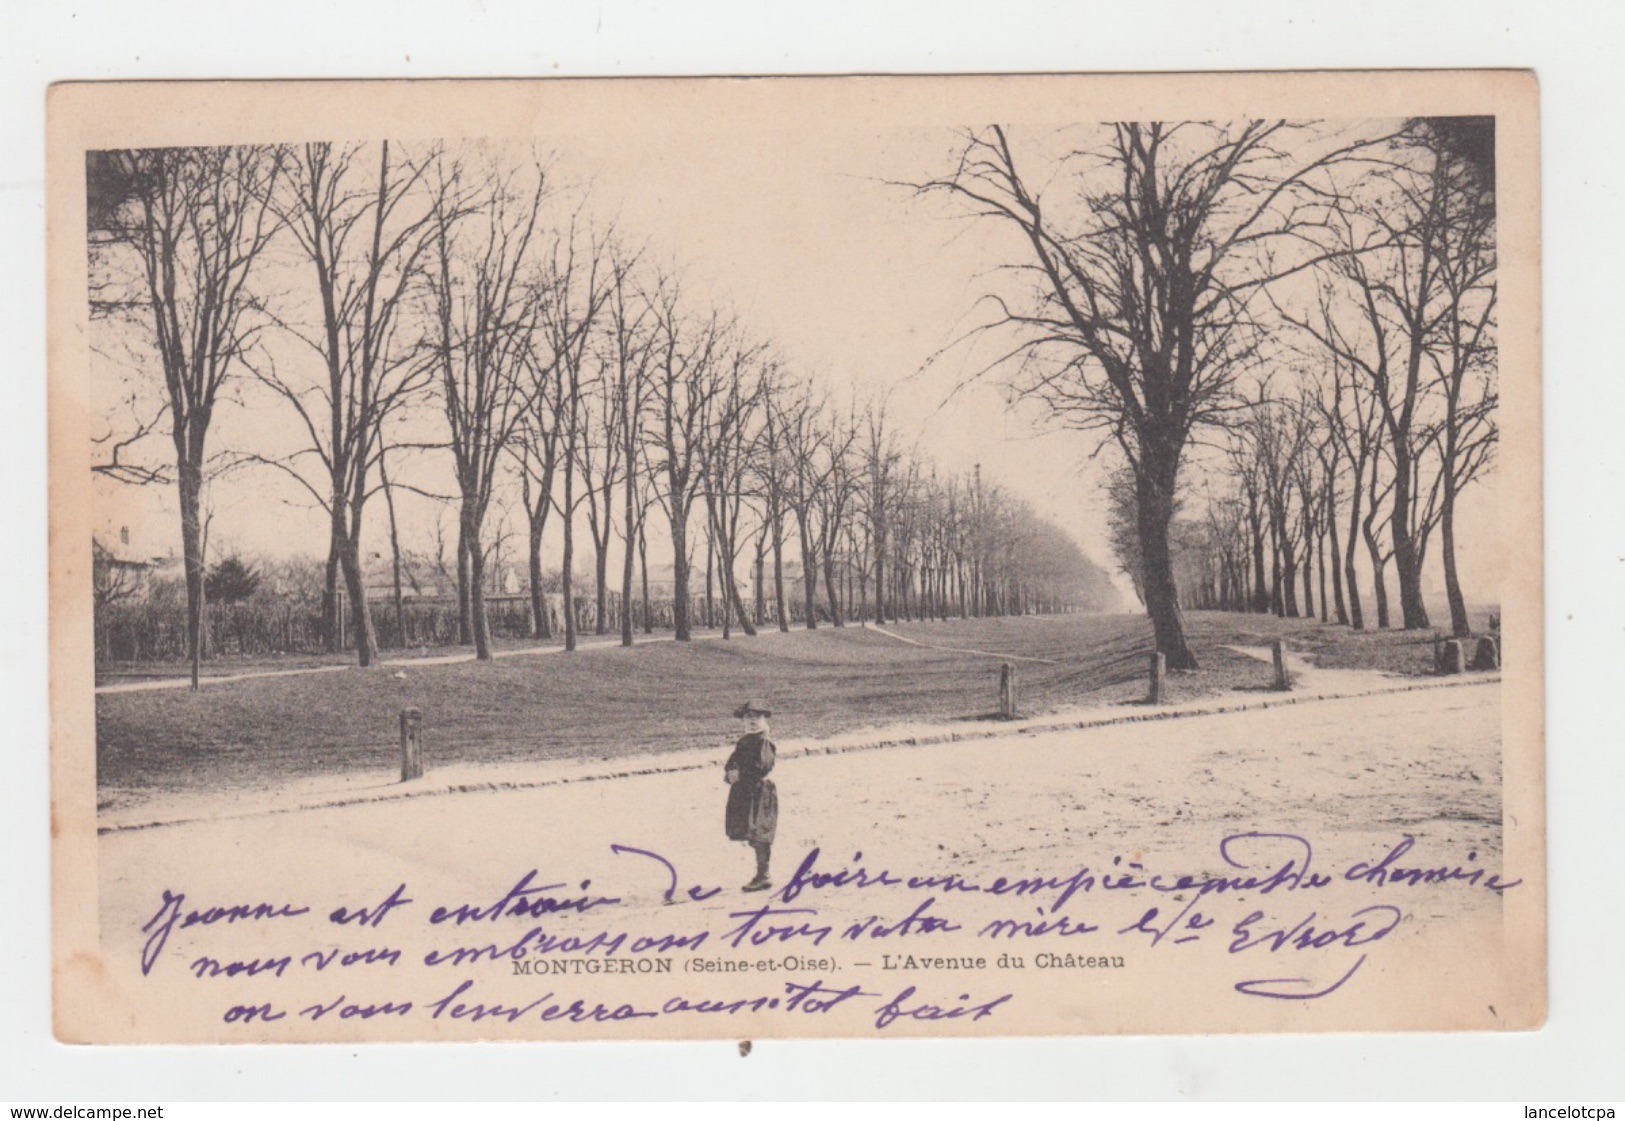 Jeanne est entrain de faire un empiècement de chemise
nous vous embrassons tous votre mère Vve Evrard
MONTGERON (Seine-et-Oise). — L'Avenue du Château
on vous l'enverra aussitot fait
www.delcampe.net
lancelotcpa